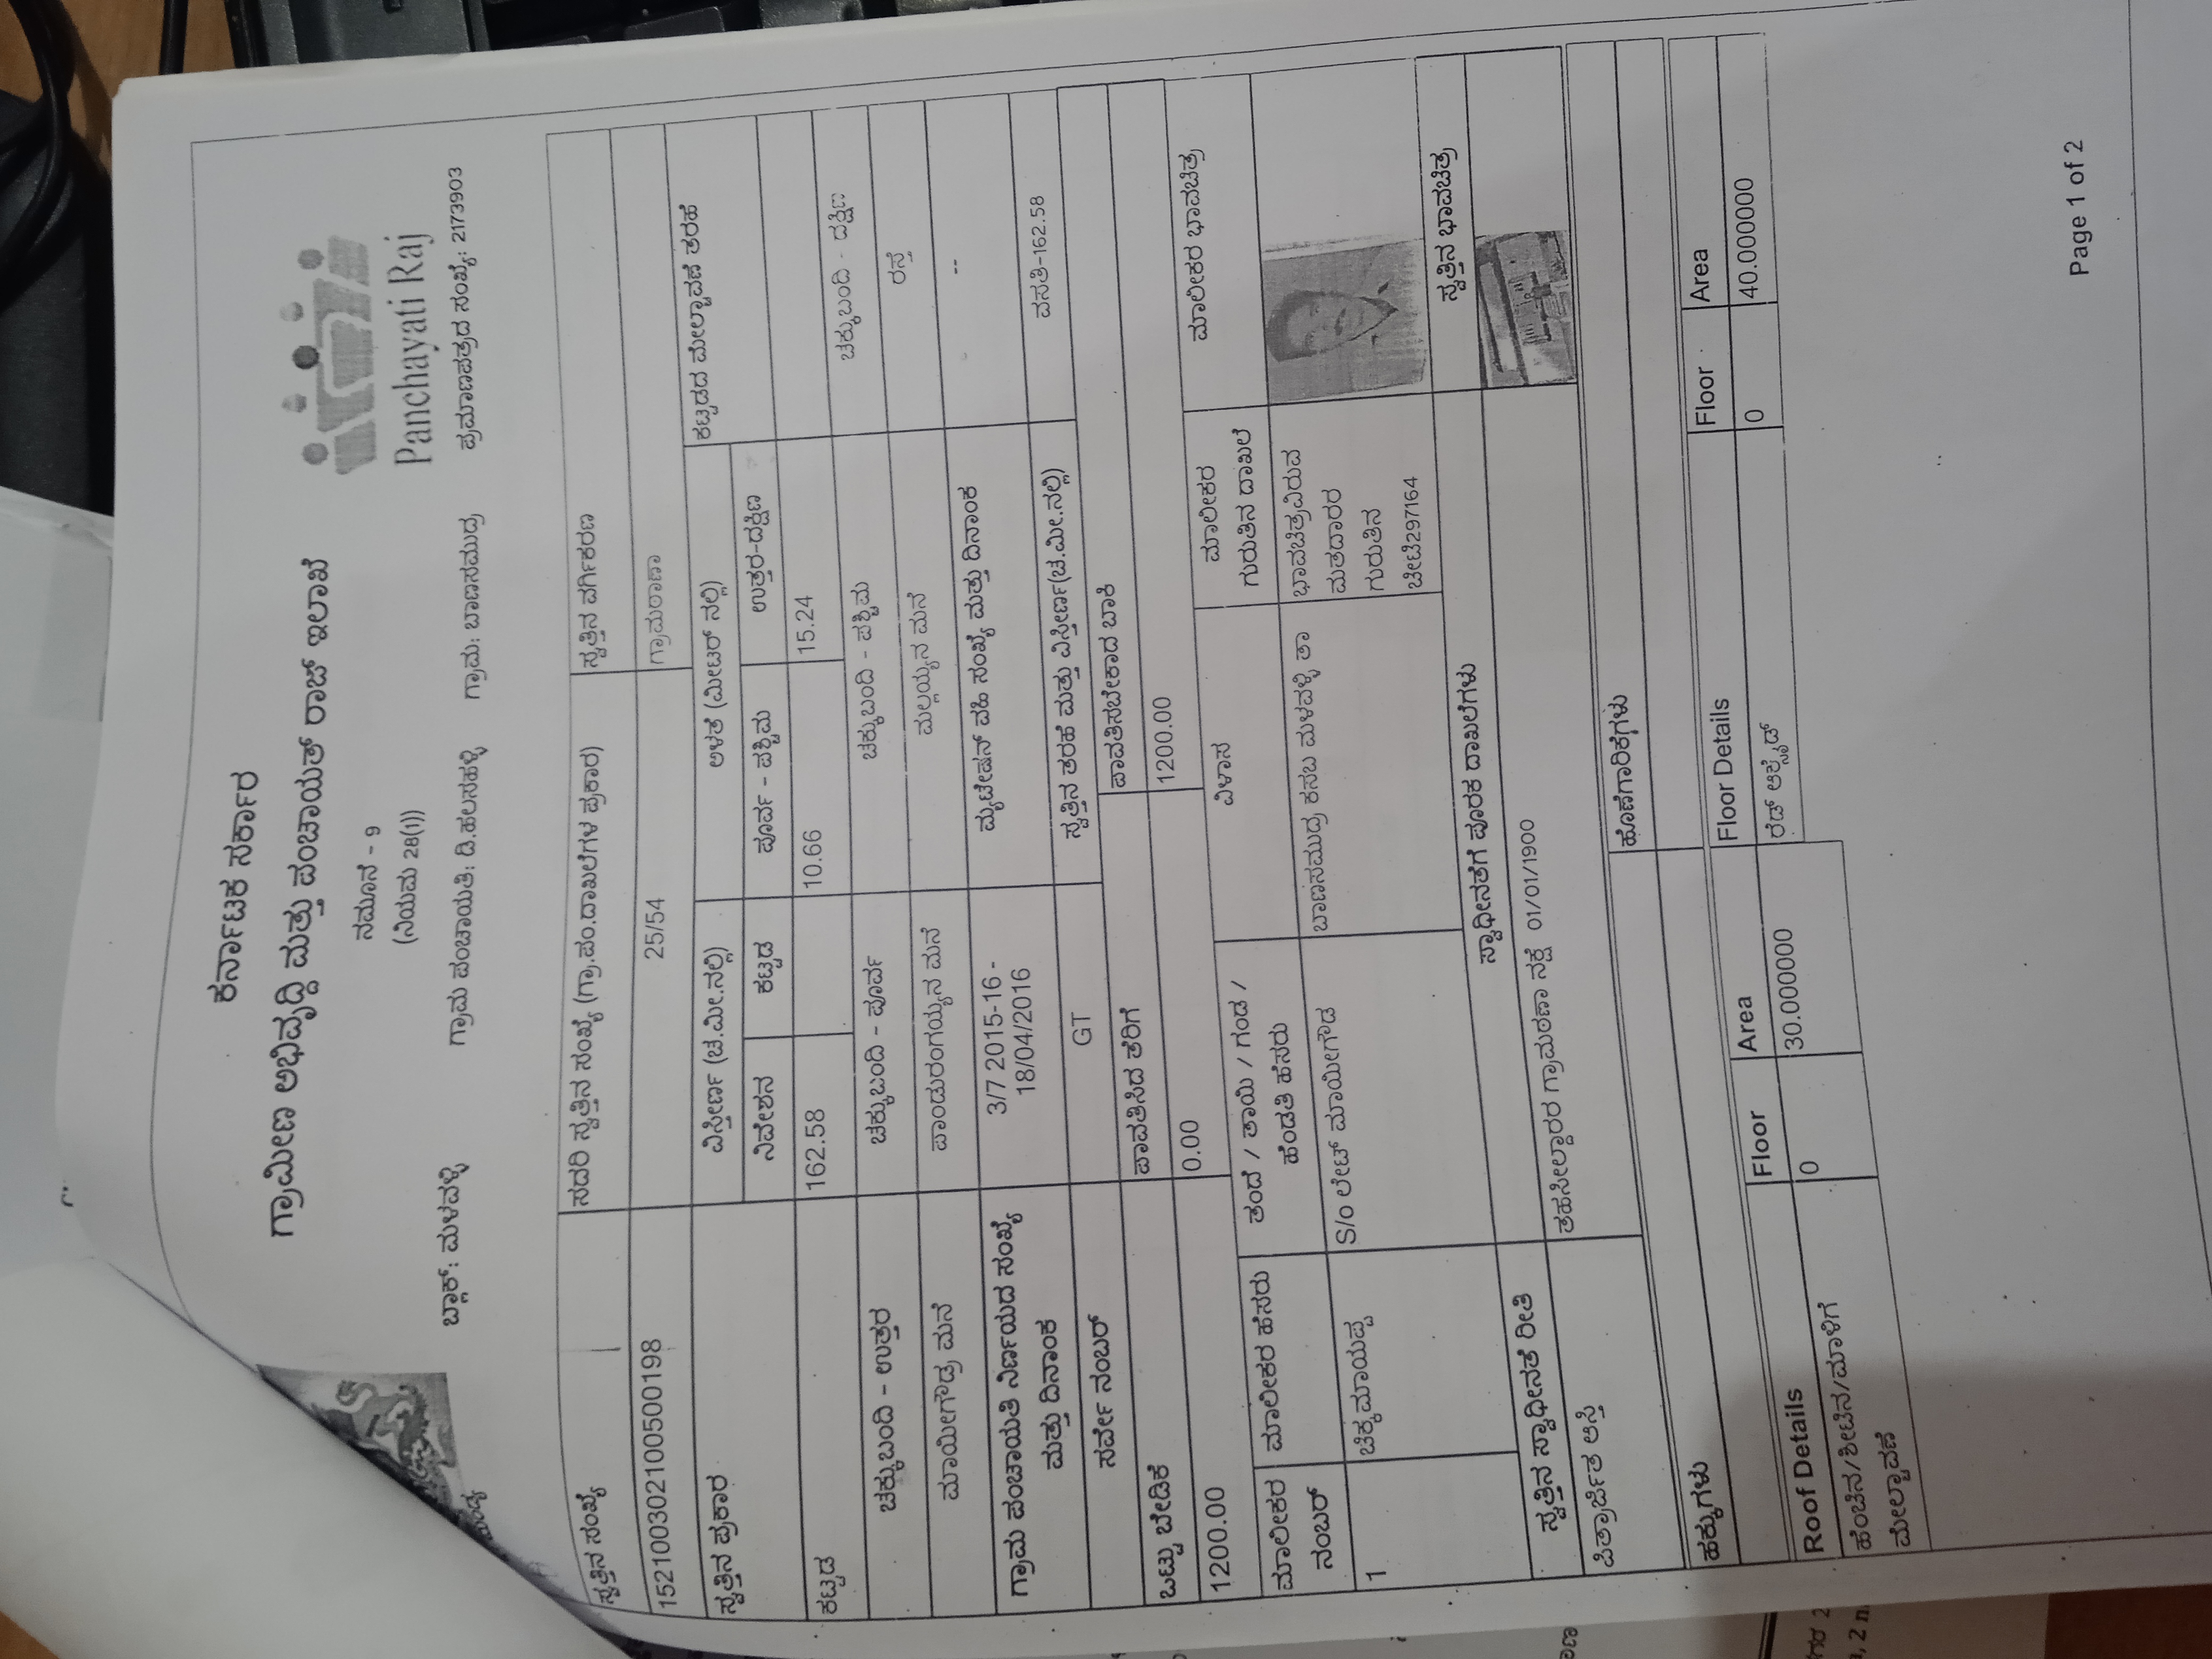 ಕರ್ನಾಟಕ ಸರ್ಕಾರ
ಗ್ರಾಮೀಣ ಅಭಿವೃದ್ಧಿ ಮತ್ತು ಪಂಚಾಯತ್ ರಾಜ್ ಇಲಾಖೆ
Panchayati Raj
ನಮೂನೆ - 9
(ನಿಯಮ 28(1))
ಬ್ಲಾಕ್: ಮಳವಳ್ಳಿ ಗ್ರಾಮ ಪಂಚಾಯತಿ: ಡಿ.ಹಲಸಹಳ್ಳಿ ಗ್ರಾಮ: ಬಾಣಸಮುದ್ರ ಪ್ರಮಾಣಪತ್ರದ ಸಂಖ್ಯೆ: 2173903
ಸ್ವತ್ತಿನ ಸಂಖ್ಯೆ ಸದರಿ ಸ್ವತ್ತಿನ ಸಂಖ್ಯೆ (ಗ್ರಾ.ಪಂ.ದಾಖಲೆಗಳ ಪ್ರಕಾರ) ಸ್ವತ್ತಿನ ವರ್ಗೀಕರಣ
152100302100500198 25/54 ಗ್ರಾಮಠಾಣಾ
ಸ್ವತ್ತಿನ ಪ್ರಕಾರ ವಿಸ್ತೀರ್ಣ (ಚ.ಮೀ.ನಲ್ಲಿ) ಅಳತೆ (ಮೀಟರ್ ನಲ್ಲಿ) ಕಟ್ಟಡದ ಮೇಲ್ಛಾವಣಿ ತರಹ
ನಿವೇಶನ ಕಟ್ಟಡ ಪೂರ್ವ - ಪಶ್ಚಿಮ ಉತ್ತರ-ದಕ್ಷಿಣ
ಕಟ್ಟಡ 162.58 10.66 15.24
ಚಕ್ಕುಬಂದಿ - ಉತ್ತರ ಚಕ್ಕುಬಂದಿ - ಪೂರ್ವ ಚಕ್ಕುಬಂದಿ - ಪಶ್ಚಿಮ ಚಕ್ಕುಬಂದಿ - ದಕ್ಷಿಣ
ಮಾಯೀಗೌಡ್ರ ಮನೆ ಪಾಂಡುರಂಗಯ್ಯನ ಮನೆ ಮಲ್ಲಯ್ಯನ ಮನೆ ರಸ್ತೆ
ಗ್ರಾಮ ಪಂಚಾಯತಿ ನಿರ್ಣಯದ ಸಂಖ್ಯೆ
ಮತ್ತು ದಿನಾಂಕ
3/7 2015-16 -
18/04/2016
ಮ್ಯುಟೇಷನ್ ವಹಿ ಸಂಖ್ಯೆ ಮತ್ತು ದಿನಾಂಕ --
ಸರ್ವೇ ನಂಬರ್ GT ಸ್ವತ್ತಿನ ತರಹ ಮತ್ತು ವಿಸ್ತೀರ್ಣ(ಚ.ಮೀ.ನಲ್ಲಿ) ವಸತಿ-162.58
ಒಟ್ಟು ಬೇಡಿಕೆ ಪಾವತಿಸಿದ ತೆರಿಗೆ ಪಾವತಿಸಬೇಕಾದ ಬಾಕಿ
1200.00 0.00 1200.00
ಮಾಲೀಕರ
ನಂಬರ್
ಮಾಲೀಕರ ಹೆಸರು
ತಂದೆ / ತಾಯಿ / ಗಂಡ /
ಹೆಂಡತಿ ಹೆಸರು
ವಿಳಾಸ
ಮಾಲೀಕರ
ಗುರುತಿನ ದಾಖಲೆ
ಮಾಲೀಕರ ಭಾವಚಿತ್ರ
1 ಚಿಕ್ಕಮಾಯಪ್ಪ S/o ಲೇಟ್ ಮಾಯೀಗೌಡ ಬಾಣಸಮುದ್ರ ಕಸಬ ಮಳವಳ್ಳಿ ತಾ
ಭಾವಚಿತ್ರವಿರುವ
ಮತದಾರರ
ಗುರುತಿನ
ಚೀಟಿ297164
ಸ್ವತ್ತಿನ ಸ್ವಾಧೀನತೆ ರೀತಿ ಸ್ವಾಧೀನತೆಗೆ ಪೂರಕ ದಾಖಲೆಗಳು ಸ್ವತ್ತಿನ ಭಾವಚಿತ್ರ
ಪಿತ್ರಾರ್ಜಿತ ಆಸ್ತಿ ತಹಸೀಲ್ದಾರರ ಗ್ರಾಮಠಣಾ ನಕ್ಷೆ 01/01/1900
ಹಕ್ಕುಗಳು ಹೊಣೆಗಾರಿಕೆಗಳು
Roof Details Floor Area Floor Details Floor Area
ಹಂಚಿನ/ಶೀಟಿನ/ಮಾಳಿಗೆ
ಮೇಲ್ಛಾವಣಿ
0 30.000000 ರೆಡ್ ಆಕ್ಸೈಡ್ 0 40.000000
Page 1 of 2